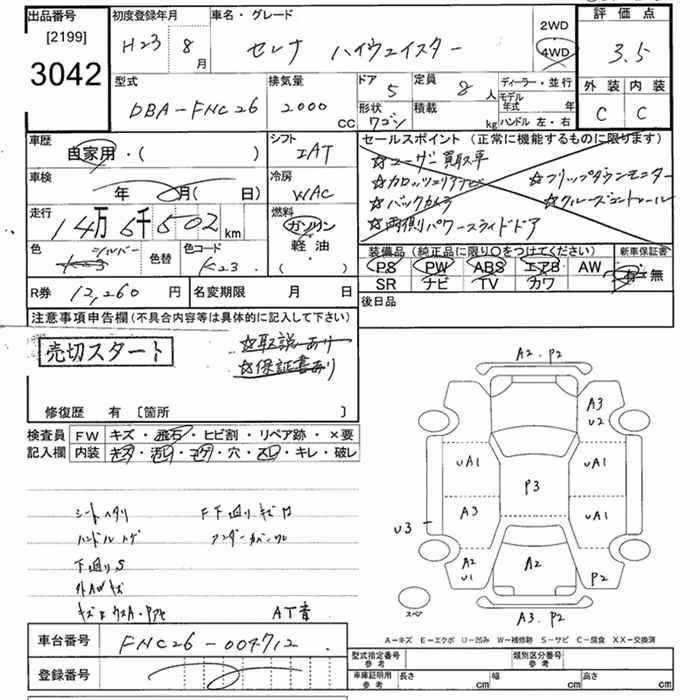 出品番号
[2199]
3042
初度登録年月
H23 8 月
車名・グレード
セレナ ハイウェイスター
2WD
4WD
評価点
3.5
外装 内装
C C
型式
DBA-FNC26
排気量
2000 cc
ドア
5
形状
ワゴン
定員
8 人
積載
kg
ディーラー・並行
モデル年式 年
ハンドル 左・右
車歴
自家用・( )
車検
年 月( 日)
走行
14万6千502 km
色
シルバー
K23
色替
色コード
K23
シフト
IAT
冷房
WAC
燃料
ガソリン
軽油
・( )
セールスポイント (正常に機能するものに限ります)
☆ユーザー買取車
☆カロッツェリアナビ
☆バックカメラ
☆両側パワースライドドア
☆フリップダウンモニター
☆クルーズコントロール
装備品 (純正品に限り○をつけてください)
PS PW ABS エアB AW
SR ナビ TV カワ
新車保証書
有・無
後日品
R券 12,260 円
名変期限 月 日
注意事項申告欄 (不具合内容等は具体的に記入して下さい)
売切スタート
☆取説あり
☆保証書あり
修復歴 有 [箇所 ]
検査員
記入欄
FW キズ・飛石・ヒビ割・リペア跡・×要
内装 キズ・汚レ・コゲ・穴・スレ・キレ・破レ
シートヘタリ
ハンドルハゲ
下廻りS
外AWキズ
F下廻りキズ
AT音
車台番号
FNC26-004712
登録番号
A2.P2
A3
U2
UA1
UA1
P3
A3
UA1
U3
A2
U1
A2
P2
スペア
A3.P2
A-キズ E-エクボ U-凹み W-補修跡 S-サビ C-腐食 XX-交換済
型式指定番号
参考
類別区分番号
参考
車庫証明用
参考
長さ cm
幅 cm
高さ cm